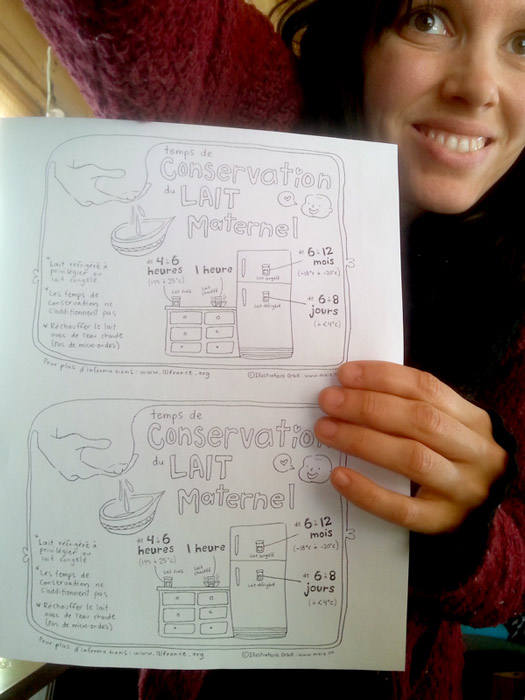 temps de
Conservation
du LAIT
Maternel
* Lait réfrigéré à
privilégier au
lait congelé
* Les temps de
conservation ne
s'additionnent pas
* Réchauffer le lait
avec de l'eau chaude
(Pas de micro-ondes)
de 4 à 6
heures
(19° à 25°C)
Lait frais
1 heure
Lait chauffé
de 6 à 12
mois
(-18°C à -20°C)
Lait congelé
de 6 à 8
jours
(0 à <4°C)
Lait réfrigéré
Pour plus d'informations : www.lllfrance.org
© Illustrations
temps de
Conservation
du LAIT
Maternel
* Lait réfrigéré à
privilégier au
lait congelé
* Les temps de
conservation ne
s'additionnent pas
* Réchauffer le lait
avec de l'eau chaude
(Pas de micro-ondes)
de 4 à 6
heures
(19° à 25°C)
Lait frais
1 heure
Lait chauffé
de 6 à 12
mois
(-18°C à -20°C)
Lait congelé
de 6 à 8
jours
(0 à <4°C)
Lait réfrigéré
Pour plus d'informations : www.lllfrance.org
© Illustrations